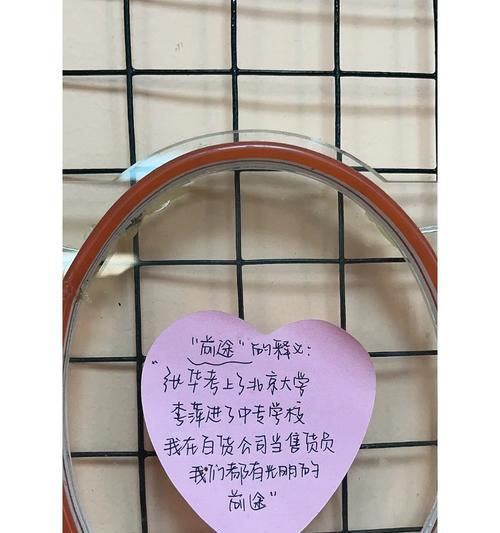 "前途"的释义:
"张华考上了北京大学
李萍进了中专学校
我在百货公司当售货员
我们都有光明的
前途"